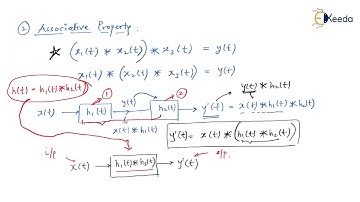 Ekeeda
② Associative Property:
(x₁(t) * x₂(t)) * x₃(t) = y(t)
x₁(t) * (x₂(t) * x₃(t)) = y(t)
h(t) = h₁(t) * h₂(t)
① ②
y(t) * h₂(t)
x(t) → h₁(t) y(t) → h₂(t) → y'(t) = x(t) * h₁(t) * h₂(t)
x(t) * h₁(t)
y'(t) = x(t) * (h₁(t) * h₂(t))
i/p o/p.
x(t) → h₁(t) * h₂(t) → y'(t)